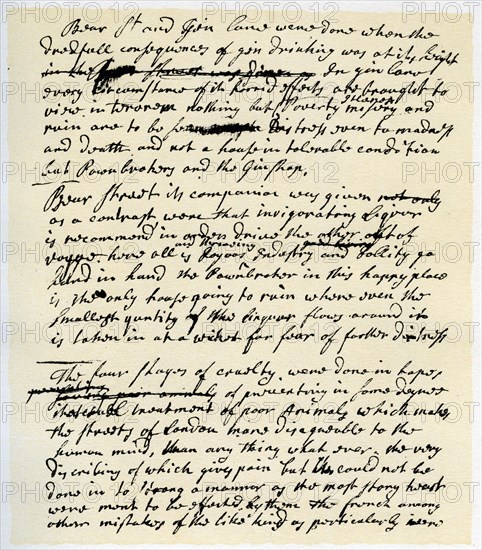 Bear St and Gin Lane were done when the
dredfull consequences of gin drinking was at its hight
in the Street was given In gin lane
every circumstance of its horrid effects are brought to
view in terorem nothing but Poverty misery and
Idleness
ruin are to be seen Distress even to madness
and death and not a house in tolerable condition
but Pawnbrokers and the Ginshop.
Bear Street its companion was given not only
as a contrast were that invigorating liquor
is recommend in order drive the other out of
vogue. here all is Joyous Industry and Jollity go
and thriveing
hand in hand the Pawnbroker in this happy place
is the only house going to ruin where even the
smallest quantity of the linquor flows around it
is taken in at a wicket for fear of farther distress
The four stages of cruelty, were done in hopes
preventing
of preventing in some degree
that cruel treatment of poor Animals which makes
the streets of London more disagreable to the
human mind, than any thing what ever. the very
discribing of which gives pain but it could not be
done in to strong a manner as the most stony heart
were ment to be effected by them the french among
other mistakes of the like kind as particularly were